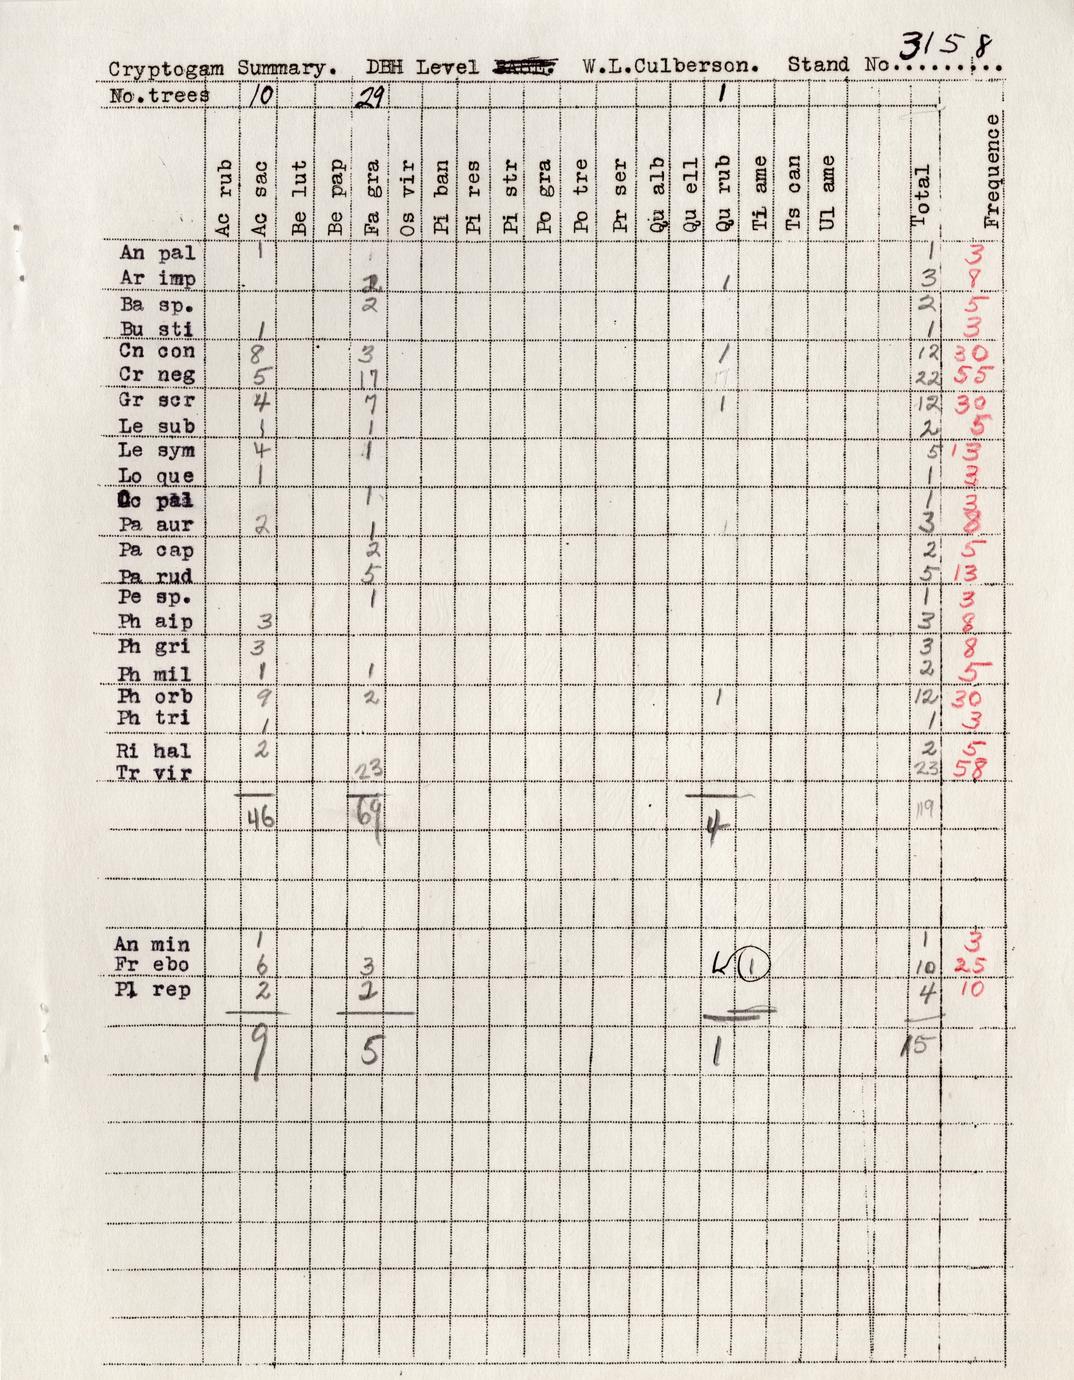 Cryptogam Summary. DBH Level W.L.Culberson. Stand No. 3158
No.trees 10 29 1
Ac rub Ac sac Be lut Be pap Fa gra Os vir Pi ban Pi res Pi str Po gra Po tre Pr ser Qu alb Qu ell Qu rub Ti ame Ts can Ul ame Total Frequence
An pal 1 1 3
Ar imp 2 1 3 8
Ba sp. 2 2 5
Bu sti 1 1 3
Cn con 8 3 1 12 30
Cr neg 5 17 22 55
Gr scr 4 7 1 12 30
Le sub 1 1 2 5
Le sym 4 1 5 13
Lo que 1 1 3
Oc pal 1 1 3
Pa aur 2 1 3 8
Pa cap 2 2 5
Pa rud 5 5 13
Pe sp. 1 1 3
Ph aip 3 3 8
Ph gri 3 3 8
Ph mil 1 1 2 5
Ph orb 9 2 1 12 30
Ph tri 1 1 3
Ri hal 2 2 5
Tr vir 23 23 58
46 69 4 119
An min 1 1 3
Fr ebo 6 3 1 10 25
Pl rep 2 2 4 10
9 5 1 15